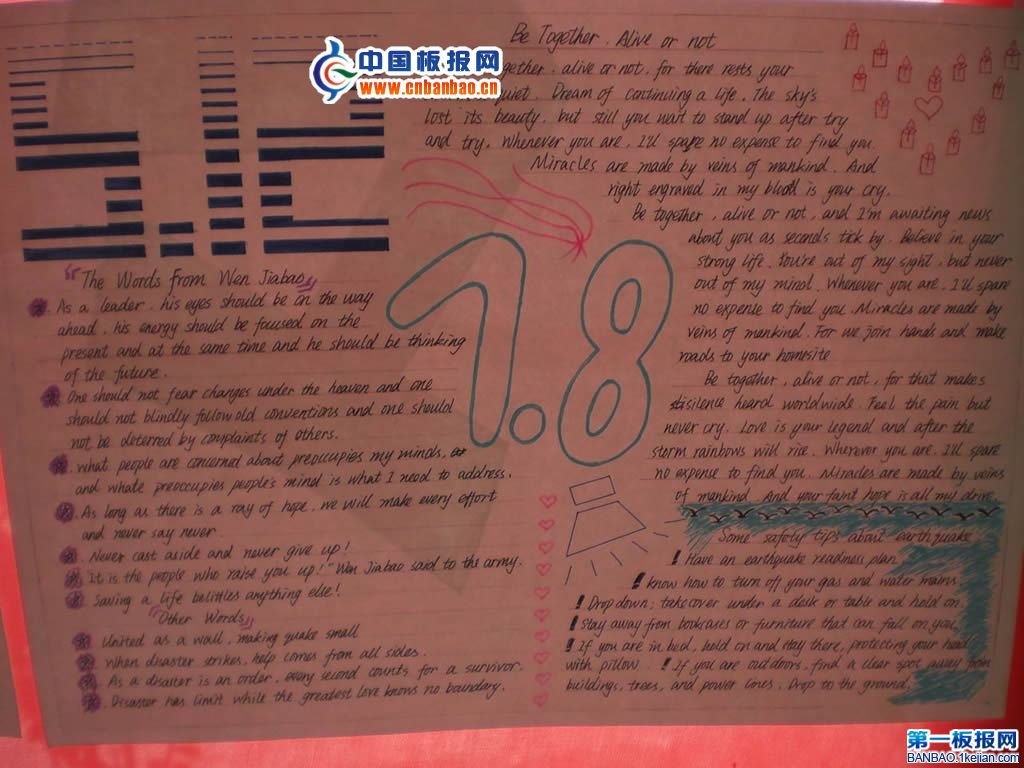 中国板报网
www.cnbanbao.cn
5.12
Be Together, Alive or not
gether, alive or not, for there rests your
quiet. Dream of continuing a life, The sky's
lost its beauty, but still you wait to stand up after try
and try. Whenever you are, I'll spare no expense to find you.
Miracles are made by veins of mankind. And
right engraved in my blood is your cry.
Be together, alive or not, and I'm awaiting news
about you as seconds tick by. Believe in your
strong life. You're out of my sight, but never
out of my mind. Whenever you are, I'll spare
no expense to find you. Miracles are made by
veins of mankind. For we join hands and make
roads to your homesite
Be together, alive or not, for that makes
silence heard worldwide. Feel the pain but
never cry. Love is your legend and after the
storm rainbows will rice. Wherever you are, I'll spare
no expense to find you. Miracles are made by veins
of mankind. And your faint hope is all my drive.
7.8
"The Words from Wen Jiabao"
As a leader, his eyes should be on the way
ahead, his energy should be focused on the
present and at the same time and he should be thinking
of the future.
One should not fear changes under the heaven and one
should not blindly follow old conventions and one should
not be deterred by complaints of others.
What people are concerned about preoccupies my minds,
and whate preoccupies people's mind is what I need to address.
As long as there is a ray of hope, we will make every effort
and never say never.
Never cast aside and never give up!
It is the people who raise you up!" Wen Jiabao said to the army.
Saving a life belittles anything else!
"Other Words"
United as a wall, making quake small
When disaster strikes, help comes from all sides.
As a disaster is an order, every second counts for a survivor.
Disaster has limit while the greatest love knows no boundary.
Some safety tips about earthquake
! Have an earthquake readiness plan
! know how to turn off your gas and water mains.
! Drop down; take cover under a desk or table and hold on.
! Stay away from bookcases or furniture that can fall on you.
! If you are in bed, hold on and stay there, protecting your head
with pillow. ! If you are outdoors, find a clear spot away from
buildings, trees, and power lines. Drop to the ground.
第一板报网
BANBAO.1kejian.com